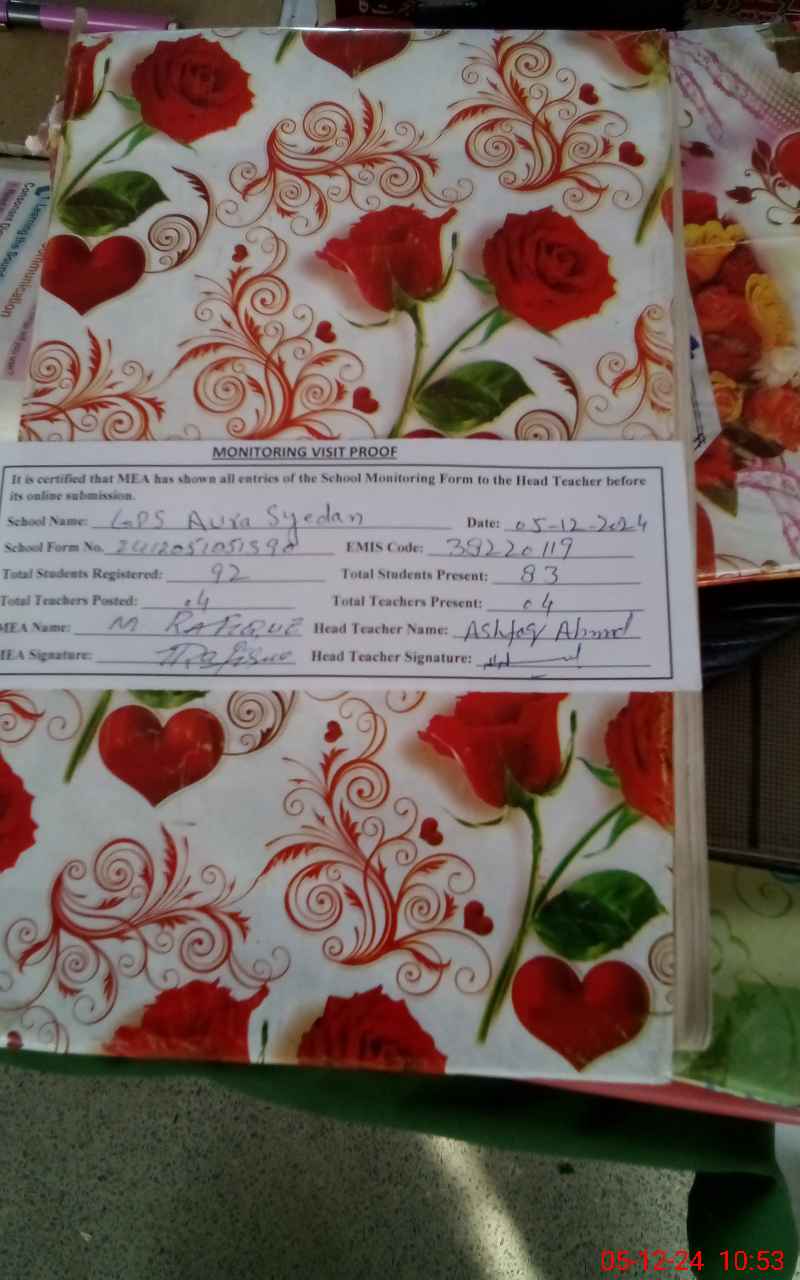 MONITORING VISIT PROOF
It is certified that MEA has shown all entries of the School Monitoring Form to the Head Teacher before
its online submission.
School Name: GPS Aura Syedan Date: 05-12-2024
School Form No. EMIS Code: 38220119
Total Students Registered: 92 Total Students Present: 83
Total Teachers Posted: 04 Total Teachers Present: 04
MEA Name: M RAFIQUE Head Teacher Name: Ashfaq Ahmad
MEA Signature: MRafique Head Teacher Signature:
05-12-24 10:53